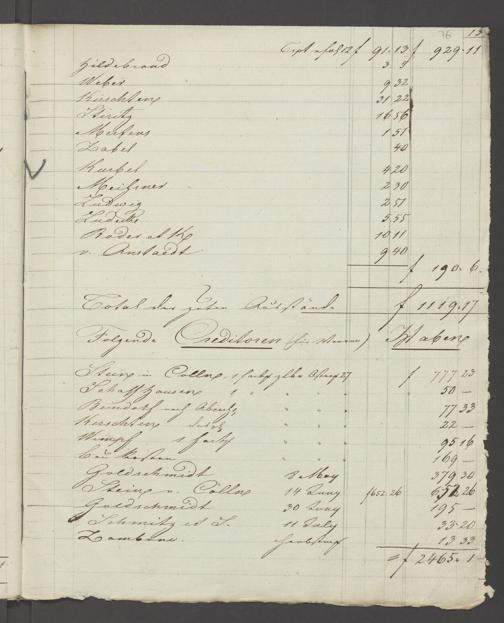 76 13
f 91.13 f 929.11
Hildebrand 3 3
Weber 9 32
Kirschten 31 22
Stiritz 16 56
Mertens 1 51
Zabel 40
Kaebel 4 20
Meissner 2 30
Ludwig 2 51
Ludecke 5 55
Bader et K 10 11
v. Anstaedt 9 40
f 190.6.
Total der guten Ausstände f 1119.17
Folgende Creditoren (für Waaren) Haben
Stein in Cölln f 777 23
Schaffhausen 50 —
77 33
Kirschten 22 —
Wimpf 95 16
169 —
Goldschmidt 8 May 379 30
Stein v. Cölln 14 Juny f 652.26 652 26
Goldschmidt 30 Juny 195 —
Schmitz et S. 11 July 33.20
13 33
= f 2465.1